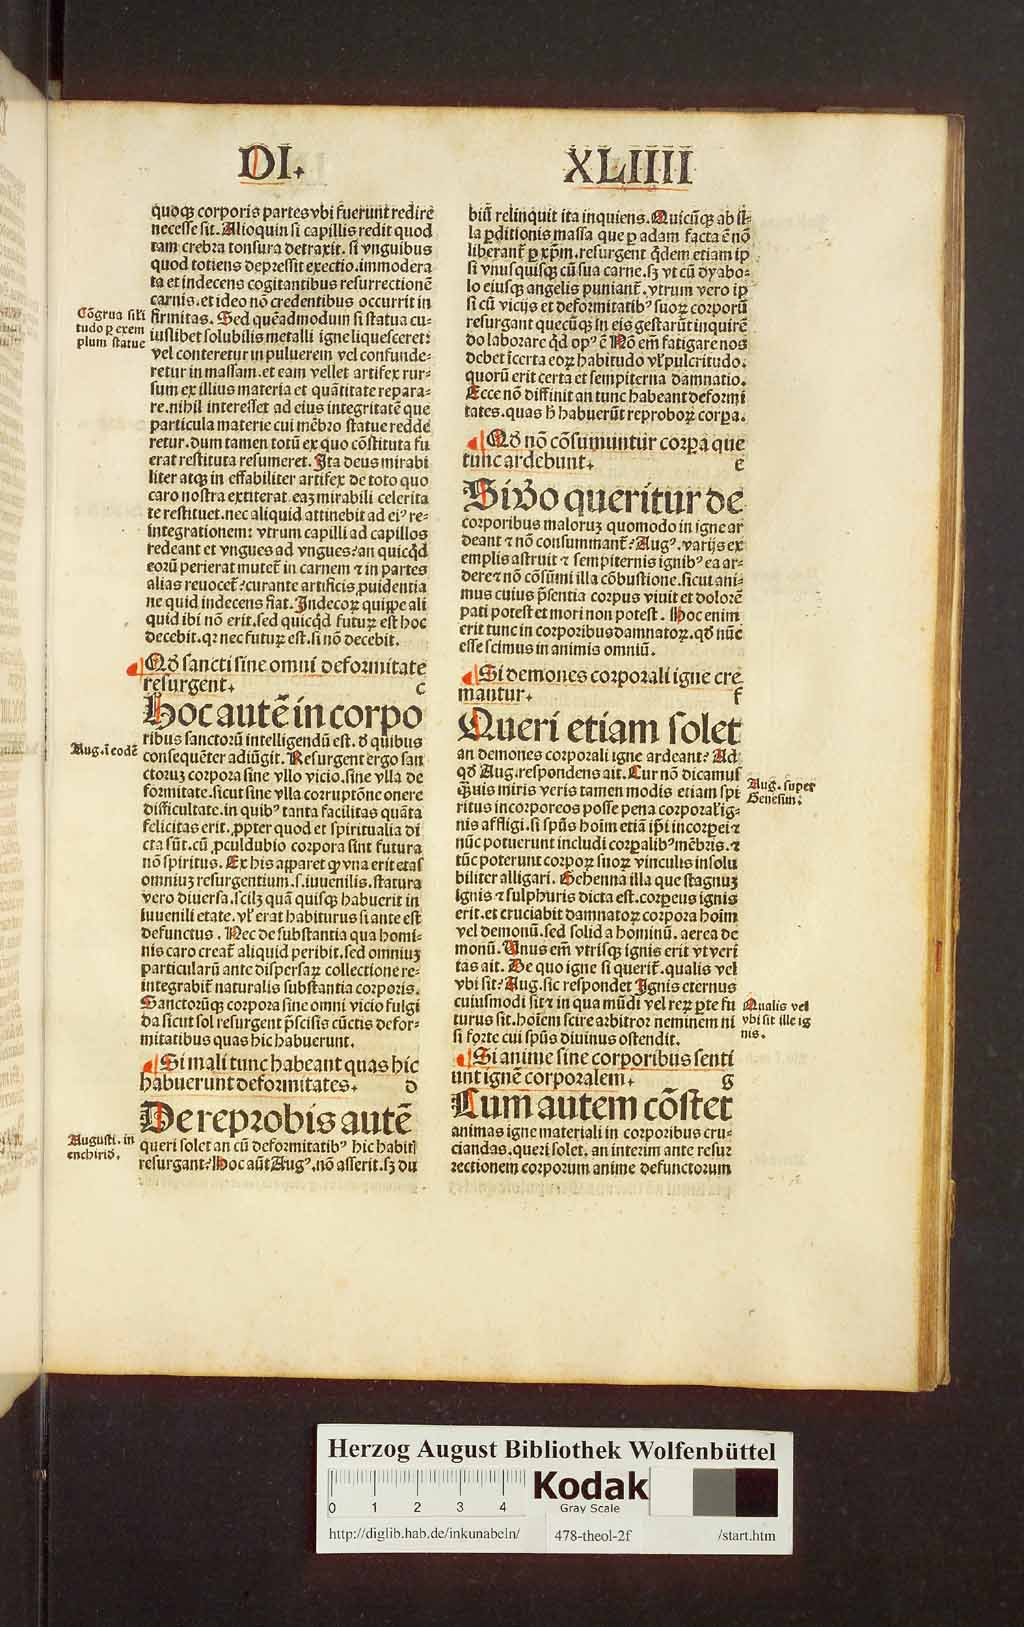 DI.
XLIIII
quoqꝫ corporis partes vbi fuerunt redire
necesse sit. Alioquin si capillis redit quod
tam crebra tonsura detraxit. si vnguibus
quod totiens depressit exectio. immodera
ta et indecens cogitantibus resurrectionē
carnis. et ideo nō credentibus occurrit in
firmitas. Sed quēadmodum si statua cu-
iuslibet solubilis metalli igne liquesceret:
vel conteretur in puluerem vel confunde-
retur in massam. et eam vellet artifex rur-
sum ex illius materia et quātitate repara-
re. nihil interesset ad eius integritatē que
particula materie cui mēbro statue redde
retur. dum tamen totū ex quo cōstituta fu
erat restituta resumeret. Ita deus mirabi
liter atqꝫ in effabiliter artifex de toto quo
caro nostra extiterat. eaꝫ mirabili celerita
te restituet. nec aliquid attinebit ad eiꝰ re-
integrationem: vtrum capilli ad capillos
redeant et vngues ad vngues: an quicqd̄
eorū perierat mutet̄ in carnem ⁊ in partes
alias reuocet̄: curante artificis ꝓuidentia
ne quid indecens fiat. Indecoꝝ quippe ali
quid ibi nō erit. sed quicqd̄ futuꝝ est hoc
decebit. qꝛ nec futuꝝ est. si nō decebit.
Cōgrua sil'i
tudo ꝑ exem
plum statue
Qd̄ sancti sine omni deformitate
resurgent. c
Hoc autē in corpo
ribus sanctorū intelligendū est. d̄ quibus
consequēter adiūgit. Resurgent ergo san
ctoruꝫ corpora sine vllo vicio. sine vlla de
formitate. sicut sine vlla corruptōne onere
difficultate. in quibꝰ tanta facilitas quāta
felicitas erit. ꝓpter quod et spiritualia di
cta sūt. cū ꝓculdubio corpora sint futura
nō spiritus. Ex his apparet ꝙ vna erit etas
omniuꝫ resurgentium. s. iuuenilis. statura
vero diuersa. scilꝫ quā quisqꝫ habuerit in
iuuenili etate. vl' erat habiturus si ante est
defunctus. Nec de substantia qua homi-
nis caro creat̄ aliquid peribit. sed omniuꝫ
particularū ante dispersaꝝ collectione re-
integrabit̄ naturalis substantia corporis.
Sanctorūqꝫ corpora sine omni vicio fulgi
da sicut sol resurgent p̄scisis cūctis defor-
mitatibus quas hic habuerunt.
Aug. ī eodē
Si mali tunc habeant quas hic
habuerunt deformitates. d
De reprobis autē
queri solet an cū deformitatibꝰ hic habit̄
resurgant: Hoc aūt Augꝰ. nō asserit. sꝫ du
Augusti. in
enchirid̄.
biū relinquit ita inquiens. Quicūqꝫ ab il-
la ꝑditionis massa que ꝑ adam facta ē nō
liberant̄ ꝑ xp̄m. resurgent qdem etiam ip
si vnusquisqꝫ cū sua carne. sꝫ vt cū dyabo-
lo eiusqꝫ angelis puniant̄. vtrum vero ip
si cū vicijs et deformitatibꝰ suoꝝ corporū
resurgant quecūqꝫ in eis gestarūt inquirē
do laborare qd̄ opꝰ ē Nō em̄ fatigare nos
debet īcerta eoꝝ habitudo vl' pulcritudo.
quorū erit certa et sempiterna damnatio.
Ecce nō diffinit an tunc habeant deformi
tates. quas h̄ habuerūt reproboꝝ corꝑa.
Qd̄ nō cōsumuntur corꝑa que
tunc ardebunt. e
Si v̄o queritur de
corporibus maloruꝫ quomodo in igne ar
deant ⁊ nō consummant̄: Augꝰ. varijs ex
emplis astruit ⁊ sempiternis ignibꝰ ea ar-
dere ⁊ nō cōsūmi illa cōbustione. sicut ani-
mus cuius p̄sentia corpus viuit et dolorē
pati potest et mori non potest. Hoc enim
erit tunc in corporibus damnatoꝝ. qd̄ nūc
esse scimus in animis omniū.
Si demones corporali igne cre
mantur. f
Queri etiam solet
an demones corporali igne ardeant: Ad
qd̄ Aug. respondens ait. Cur nō dicamus
quis miris veris tamen modis etiam spi
ritus incorporeos posse pena corporal' ig-
nis affligi. si spūs hoīm etiā ip̄i incorꝑei ⁊
nūc potuerunt includi corꝑalibꝰ mēbris. ⁊
tūc poterunt corpoꝝ suoꝝ vinculis insolu
biliter alligari. Gehenna illa que stagnuꝫ
ignis ⁊ sulphuris dicta est. corꝑeus ignis
erit. et cruciabit damnatoꝝ corpora hoīm
vel demonū. sed solida hominū. aerea de
monū. Unus em̄ vtrisqꝫ ignis erit vt veri
tas ait. De quo igne si querit̄. qualis vel
vbi sit: Aug. sic respondet Ignis eternus
cuiusmodi sit ⁊ in qua mūdi vel reꝝ ꝑte fu
turus sit. hoīem scire arbitror neminem ni
si forte cui spūs diuinus ostendit.
Aug. super
Genesim.
Qualis vel
vbi sit ille ig
nis.
Si anime sine corporibus senti
unt ignē corporalem. g
Cum autem cōstet
animas igne materiali in corporibus cru-
ciandas. queri solet. an interim ante resur
rectionem corporum anime defunctorum
Herzog August Bibliothek Wolfenbüttel
0 1 2 3 4
Kodak
Gray Scale
http://diglib.hab.de/inkunabeln/ 478-theol-2f /start.htm